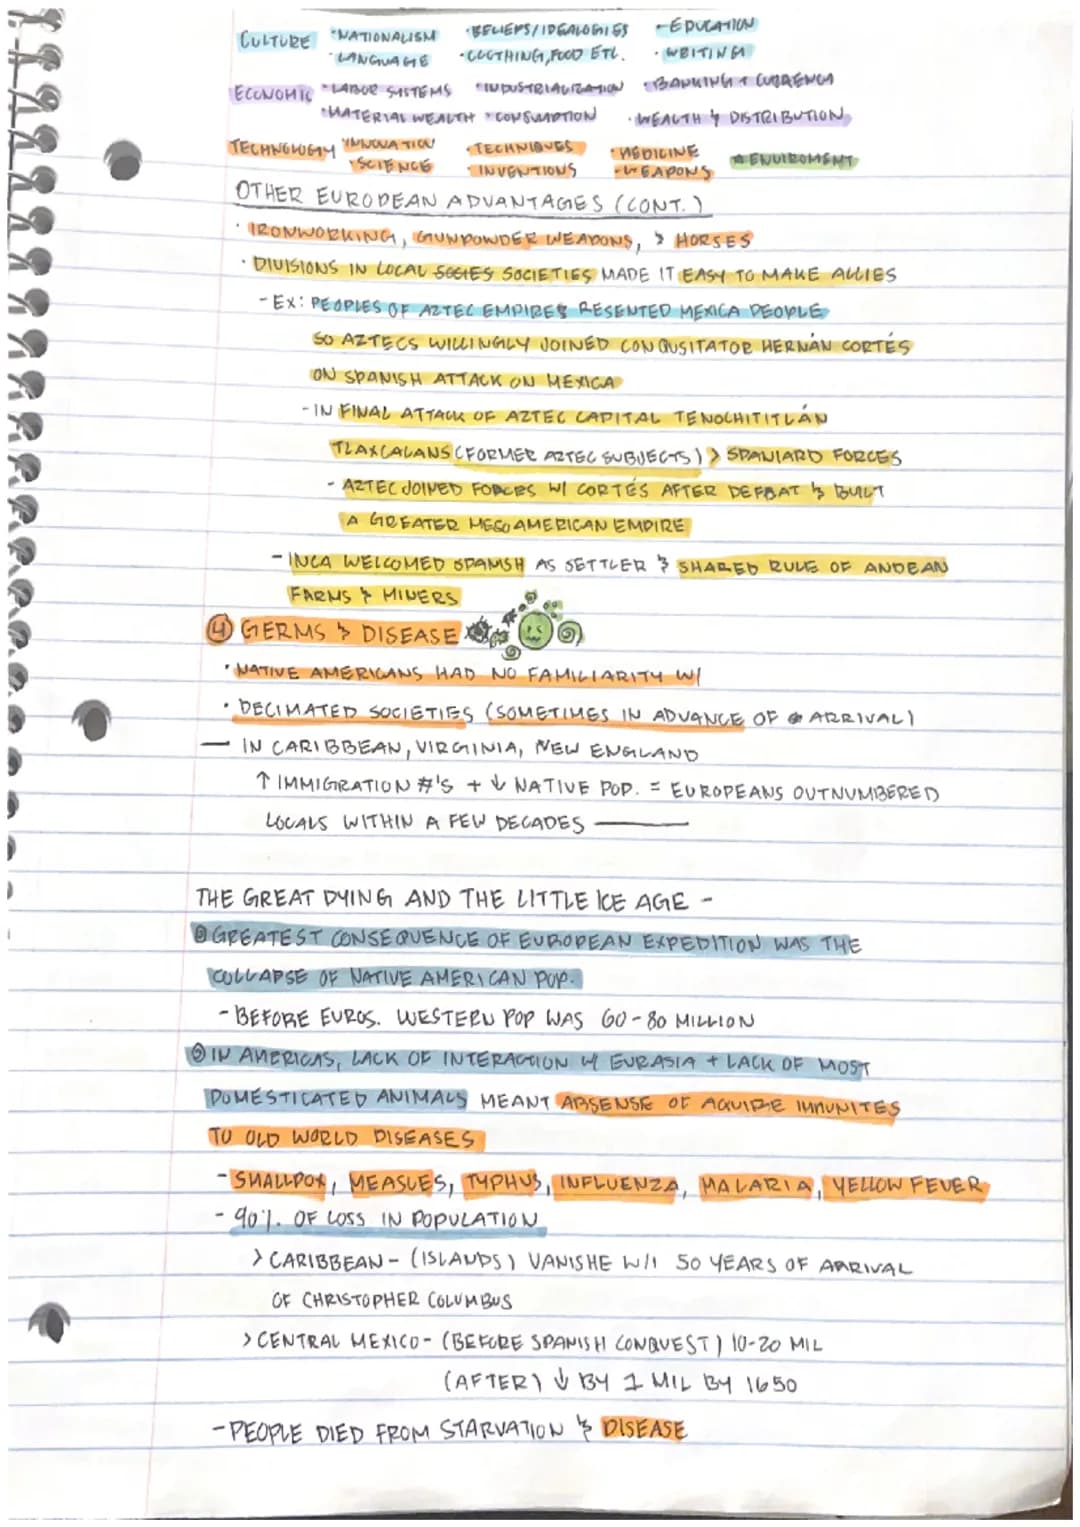 CULTURE ·NATIONALISM ·BELIEFS/IDEALOGIES -EDUCATION
·LANGUAGE ·CLOTHING, FOOD ETC. ·WRITING
ECONOMIC ·LABOR SYSTEMS ·INDUSTRIALIZATION ·BANKING + CURRENCY
·MATERIAL WEALTH ·CONSUMPTION ·WEALTH & DISTRIBUTION
TECHNOLOGY ·INNOVATION ·TECHNIQUES ·MEDICINE ★ENVIROMENT
·SCIENCE ·INVENTIONS -WEAPONS
OTHER EUROPEAN ADVANTAGES (CONT.)
· IRONWORKING, GUNPOWDER WEAPONS, & HORSES
· DIVISIONS IN LOCAL SOCIETIES MADE IT EASY TO MAKE ALLIES
- EX: PEOPLES OF AZTEC EMPIRES RESENTED MEXICA PEOPLE
SO AZTECS WILLINGLY JOINED CONQUSITATOR HERNÁN CORTÉS
ON SPANISH ATTACK ON MEXICA
- IN FINAL ATTACK OF AZTEC CAPITAL TENOCHITITLÁN
TLAXCALANS (FORMER AZTEC SUBJECTS) > SPANIARD FORCES
- AZTEC JOINED FORCES W/ CORTÉS AFTER DEFEAT & BUILT
A GREATER MESOAMERICAN EMPIRE
- INCA WELCOMED SPANISH AS SETTLER & SHARED RULE OF ANDEAN
FARMS & MINERS
④ GERMS & DISEASE
· NATIVE AMERICANS HAD NO FAMILIARITY W/
· DECIMATED SOCIETIES (SOMETIMES IN ADVANCE OF ARRIVAL)
— IN CARIBBEAN, VIRGINIA, NEW ENGLAND
↑ IMMIGRATION #'S + ↓ NATIVE POP. = EUROPEANS OUTNUMBERED
LOCALS WITHIN A FEW DECADES —
THE GREAT DYING AND THE LITTLE ICE AGE -
GREATEST CONSEQUENCE OF EUROPEAN EXPEDITION WAS THE
COLLAPSE OF NATIVE AMERICAN POP.
- BEFORE EUROS. WESTERN POP WAS 60-80 MILLION
IN AMERICAS, LACK OF INTERACTION W/ EURASIA + LACK OF MOST
DOMESTICATED ANIMALS MEANT ABSENSE OF AQUIRE IMMUNITES
TO OLD WORLD DISEASES
- SMALLPOX, MEASLES, TYPHUS, INFLUENZA, MALARIA, YELLOW FEVER
- 90% OF LOSS IN POPULATION
> CARIBBEAN - (ISLANDS) VANISHE W/I 50 YEARS OF ARRIVAL
OF CHRISTOPHER COLUMBUS
> CENTRAL MEXICO - (BEFORE SPANISH CONQUEST) 10-20 MIL
(AFTER) ↓ BY 1 MIL BY 1650
- PEOPLE DIED FROM STARVATION & DISEASE